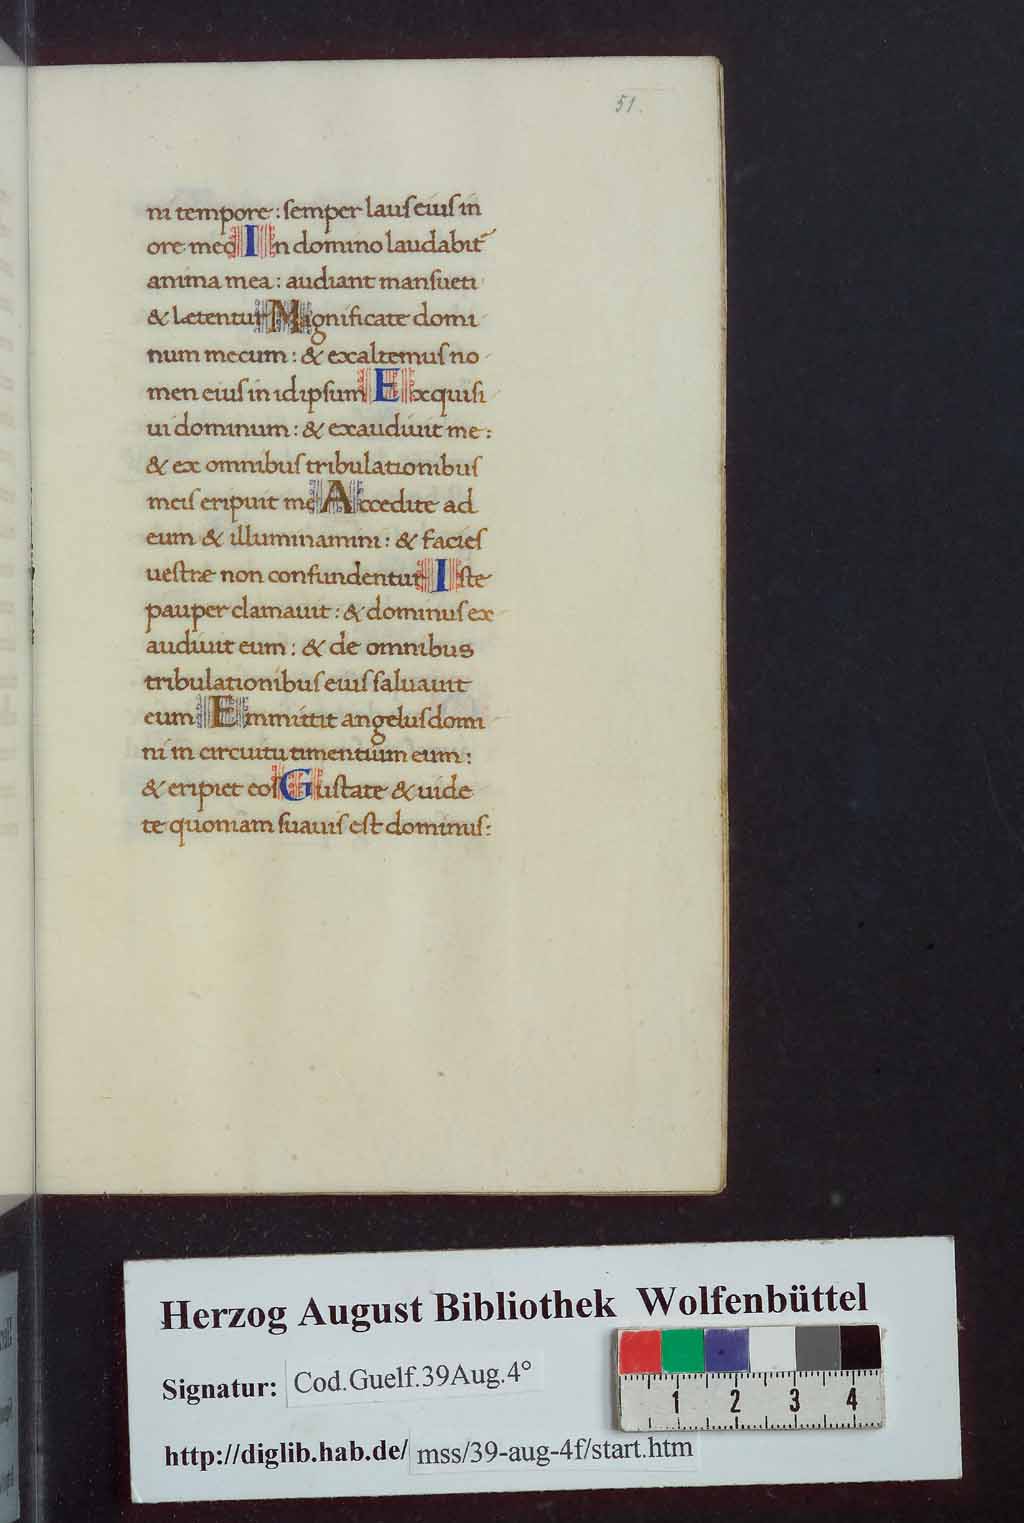 51.
ni tempore: semper laus eius in
ore meo In domino laudabit~
anima mea: audiant mansueti
& lętentur Magnificate domi
num mecum: & exaltemus no
men eius in idipsum Exquisi
ui dominum: & exaudiuit me:
& ex omnibus tribulationibus
meis eripuit me Accedite ad
eum & illuminamini: & facies
uestræ non confundentur Iste
pauper clamauit: & dominus ex
audiuit eum: & de omnibus
tribulationibus eius saluauit
eum Emmittit angelus domi
ni in circuitu timentium eum:
& eripiet eos Gustate & uide
te quoniam suauis est dominus:
Herzog August Bibliothek Wolfenbüttel
Signatur: Cod.Guelf.39Aug.4°
http://diglib.hab.de/ mss/39-aug-4f/start.htm
1 2 3 4